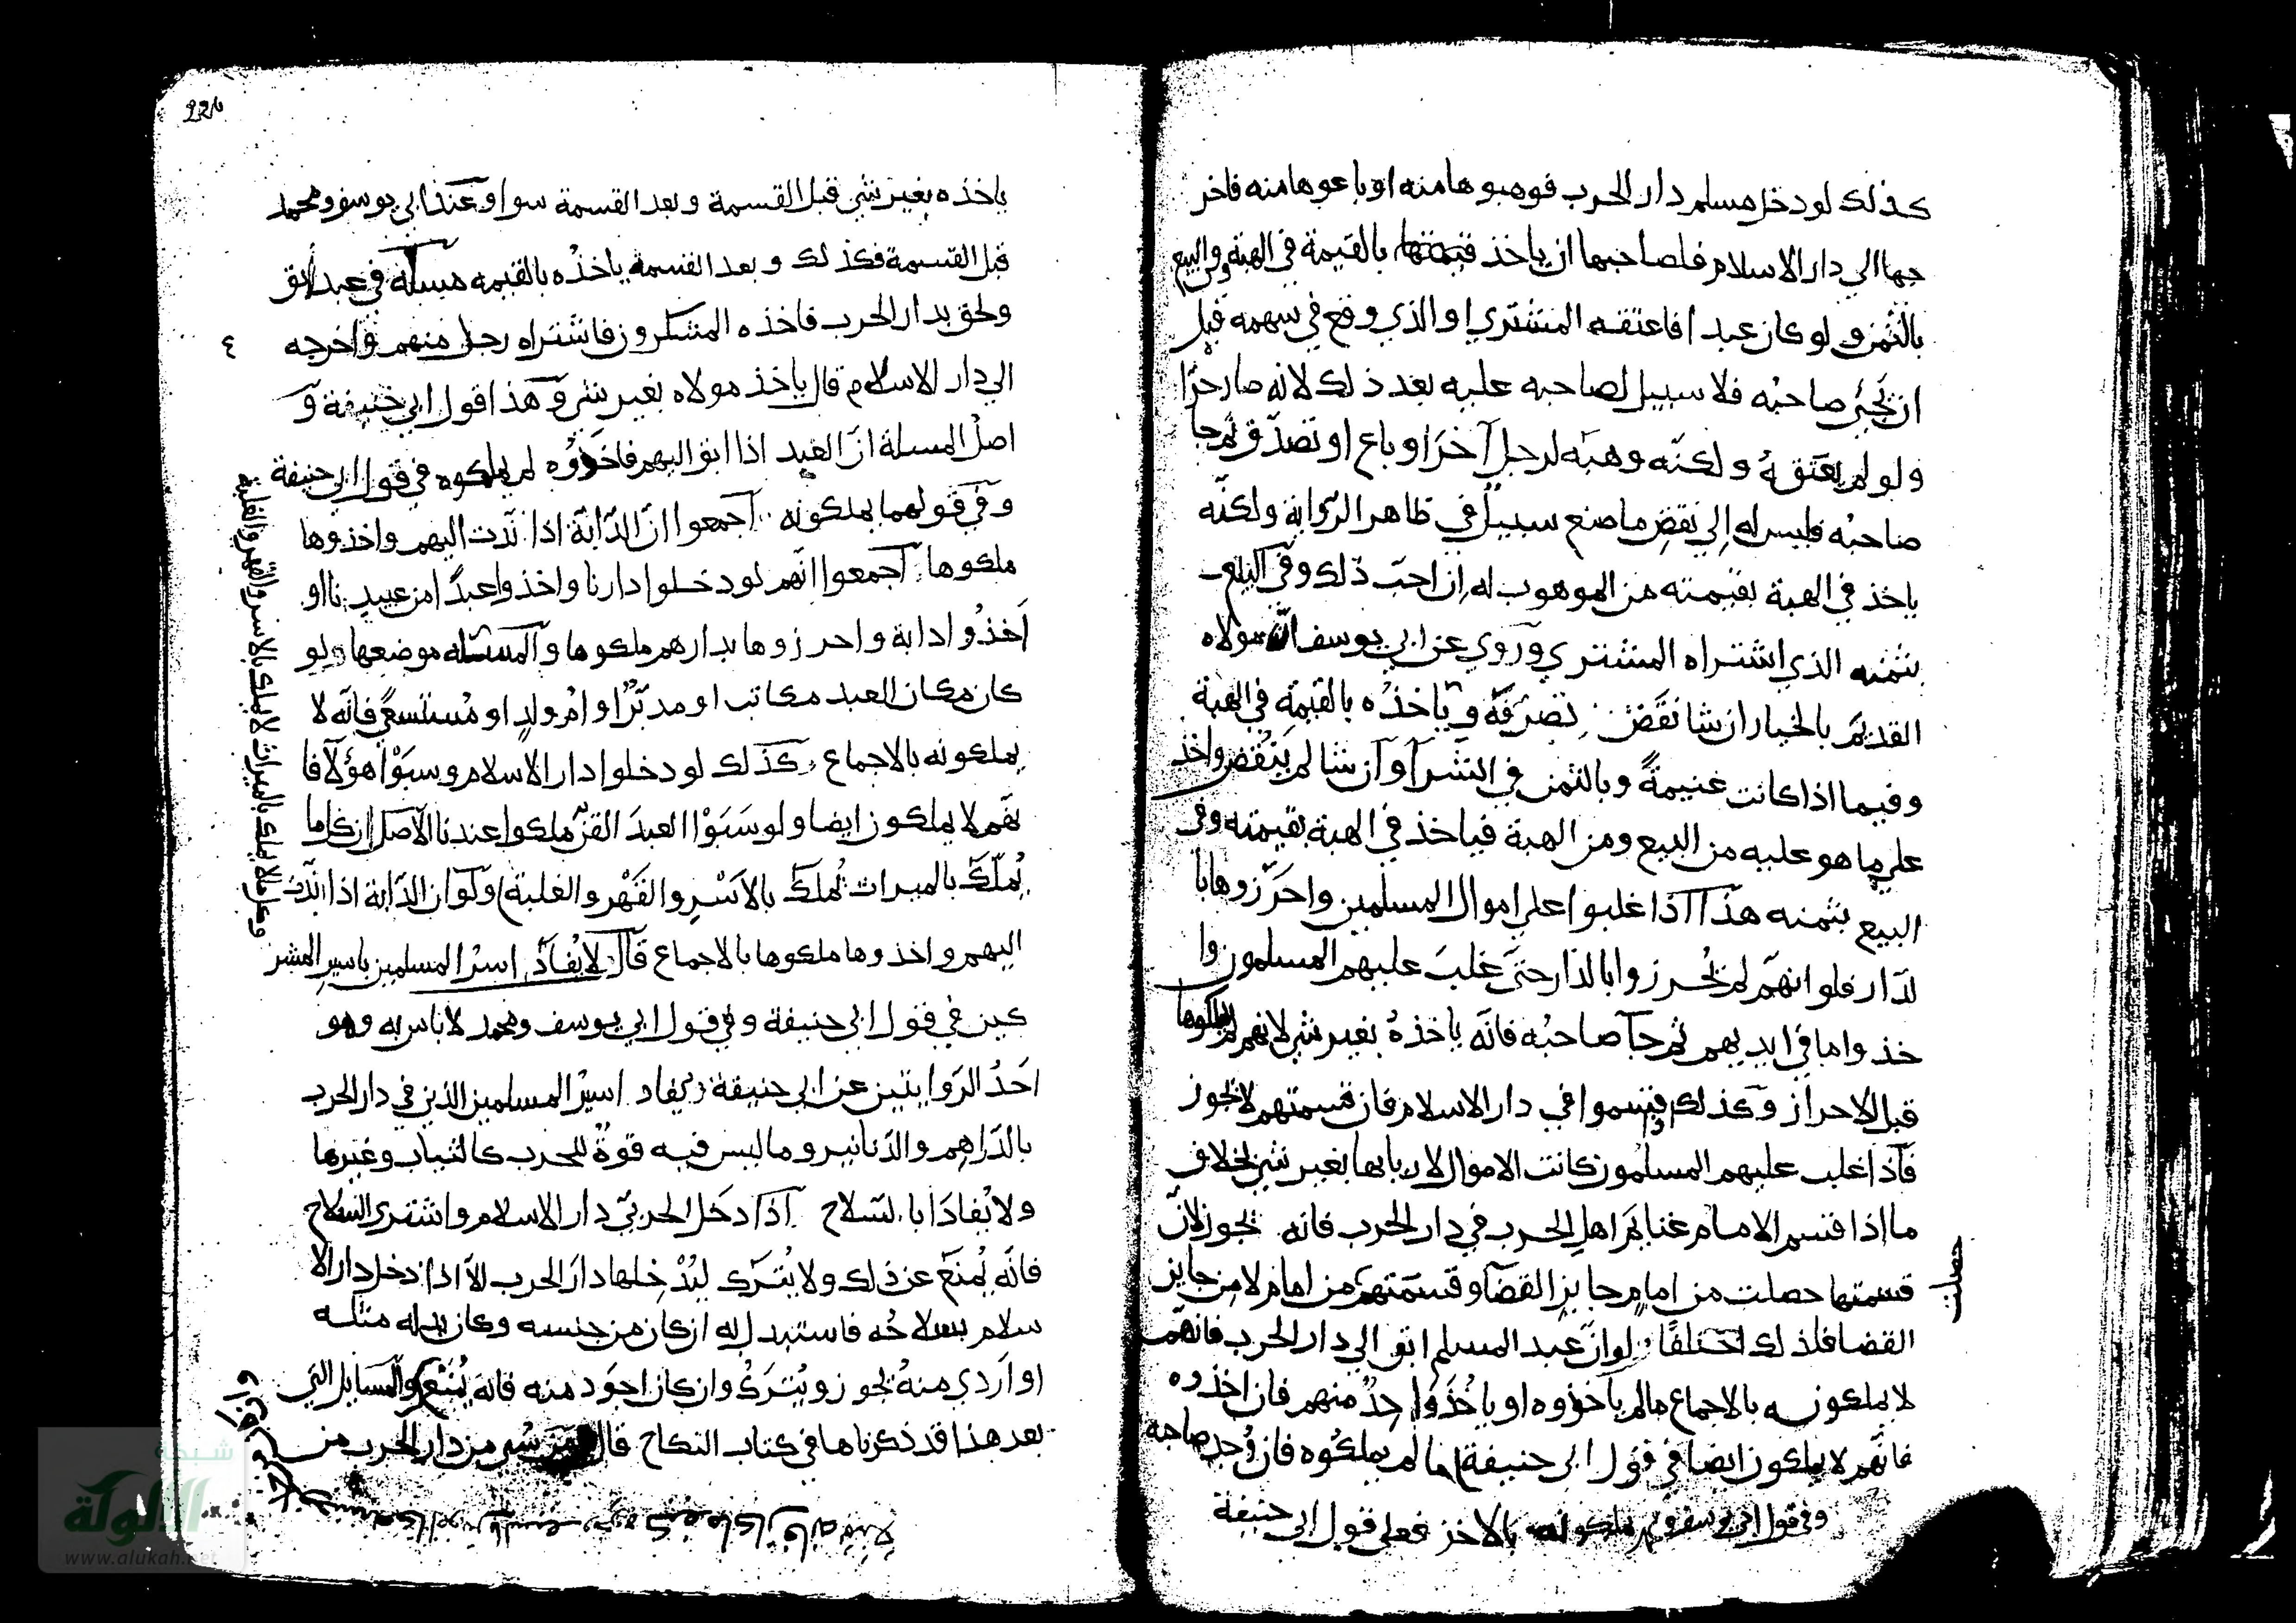 كذلك لو دخل مسلم دار الحرب فوهبوها منه او باعوها منه فاخر
جها الي دار الاسلام فلصاحبها ان ياخذ بالقيمة في الهبة وفي البيع
بالثمن ولو كان عبدا فاعتقه المشتري او الذي وقع في سهمه قبل
ان يجيء صاحبه فلا سبيل لصاحبه عليه بعد ذلك لانه صار حرا
ولو لم يعتقه ولكنه وهبه لرجل آخر او باع او تصدق ثم جا
صاحبه فليس له الي نقض ما صنع سبيل في ظاهر الرواية ولكنه
ياخذ في الهبة بقيمته من الموهوب له ان احب ذلك وفي البيع
بثمنه الذي اشتراه المشتري وروي عن ابي يوسف ان مولاه
القديم بالخيار ان شا نقض تصرفه وياخذه بالقيمة في الهبة
وفيما اذا كانت غنيمة وبالثمن في الشرا وان شا لم ينقض واخذ
علي ما هو عليه من البيع ومن الهبة فياخذ في الهبة بقيمته وفي
البيع بثمنه هذا اذا غلبوا علي اموال المسلمين واحرزوها با
لدار فلو انهم لم يحرزوا بالدار حتي غلب عليهم المسلمون وا
خذوا ما في ايديهم ثم جا صاحبه فانه ياخذه بغير شي لانهم لم يملكوها
قبل الاحراز وكذلك لو قسموا في دار الاسلام فان قسمتهم لا تجوز
فاذا غلب عليهم المسلمون كانت الاموال لاربابها بغير شي بخلاف
ما اذا قسم الامام غنايم اهل الحرب في دار الحرب فانه يجوز لان
قسمتها حصلت من امام جايز القضا وقسمتهم من امام لا من جايز
حصلت
القضا فلذلك اختلفا لو ان عبد المسلم ابق الي دار الحرب فانهم
لا يملكونه بالاجماع ما لم ياخذوه او ياخذ واحد منهم فان اخذوه
فانهم لا يملكون ايضا في قول ابي حنيفة ما لم يملكوه فان وجد صاحبه
وفي قول ابي يوسف ومحمد يملكونه بالاخذ فعلي قول ابي حنيفة
ياخذه بغير شي قبل القسمة وبعد القسمة سوا وعند ابي يوسف ومحمد
قبل القسمة فكذلك وبعد القسمة ياخذه بالقيمه مسألة في عبد ابق
ولحق بدار الحرب فاخذه المشركون فاشتراه رجل منهم واخرجه
الي دار الاسلام قال ياخذ مولاه بغير شي وهذا قول ابي حنيفة و
اصل المسلة ان العبد اذا ابق اليهم فاخذوه لم يملكوه في قول ابي حنيفة
وفي قولهما يملكونه اجمعوا ان الدابة اذا ندت اليهم واخذوها
ملكوها اجمعوا انهم لو دخلوا دارنا واخذوا عبدا من عبيدنا او
اخذوا دابة واحرزوها بدارهم ملكوها والمسئله موضعها ولو
كان مكان العبد مكاتب او مدبرا او ام ولد او مستسعي فانه لا
يملكونه بالاجماع كذلك لو دخلوا دار الاسلام وسبوا هؤلآ فا
نهم لا يملكون ايضا ولو سبوا العبد القن ملكوا عندنا الاصل ان كل ما
يملك بالميراث يملك بالاسر والقهر والغلبة ولو ان الدابة اذا ندت
وكل ما لا يملك بالميراث لا يملك بالاسر والقهر والغلبة
اليهم واخذوها ملكوها بالاجماع قال لا يفاد اسرا المسلمين باسير المشر
كين في قول ابي حنيفة وفي قول ابي يوسف ومحمد لا باس به وهو
احد الروايتين عن ابي حنيفة يفاد اسير المسلمين الذين في دار الحرب
بالدراهم والدنانير وما ليس فيه قوة للحرب كالثياب وغيرها
ولا يفادا بالسلاح اذا دخل الحربي دار الاسلام واشتري السلاح
فانه يمنع عن ذلك ولا يترك ليدخلها دار الحرب الا اذا دخل دار الا
سلام بسلاحه فاستبدل به ان كان من جنسه وكان بدله مثله
او اردي منه يجوز ويترك وان كان اجود منه فانه يمنع والمسايل التي
بعد هذا قد ذكرناها في كتاب النكاح قال من دار الحرب من